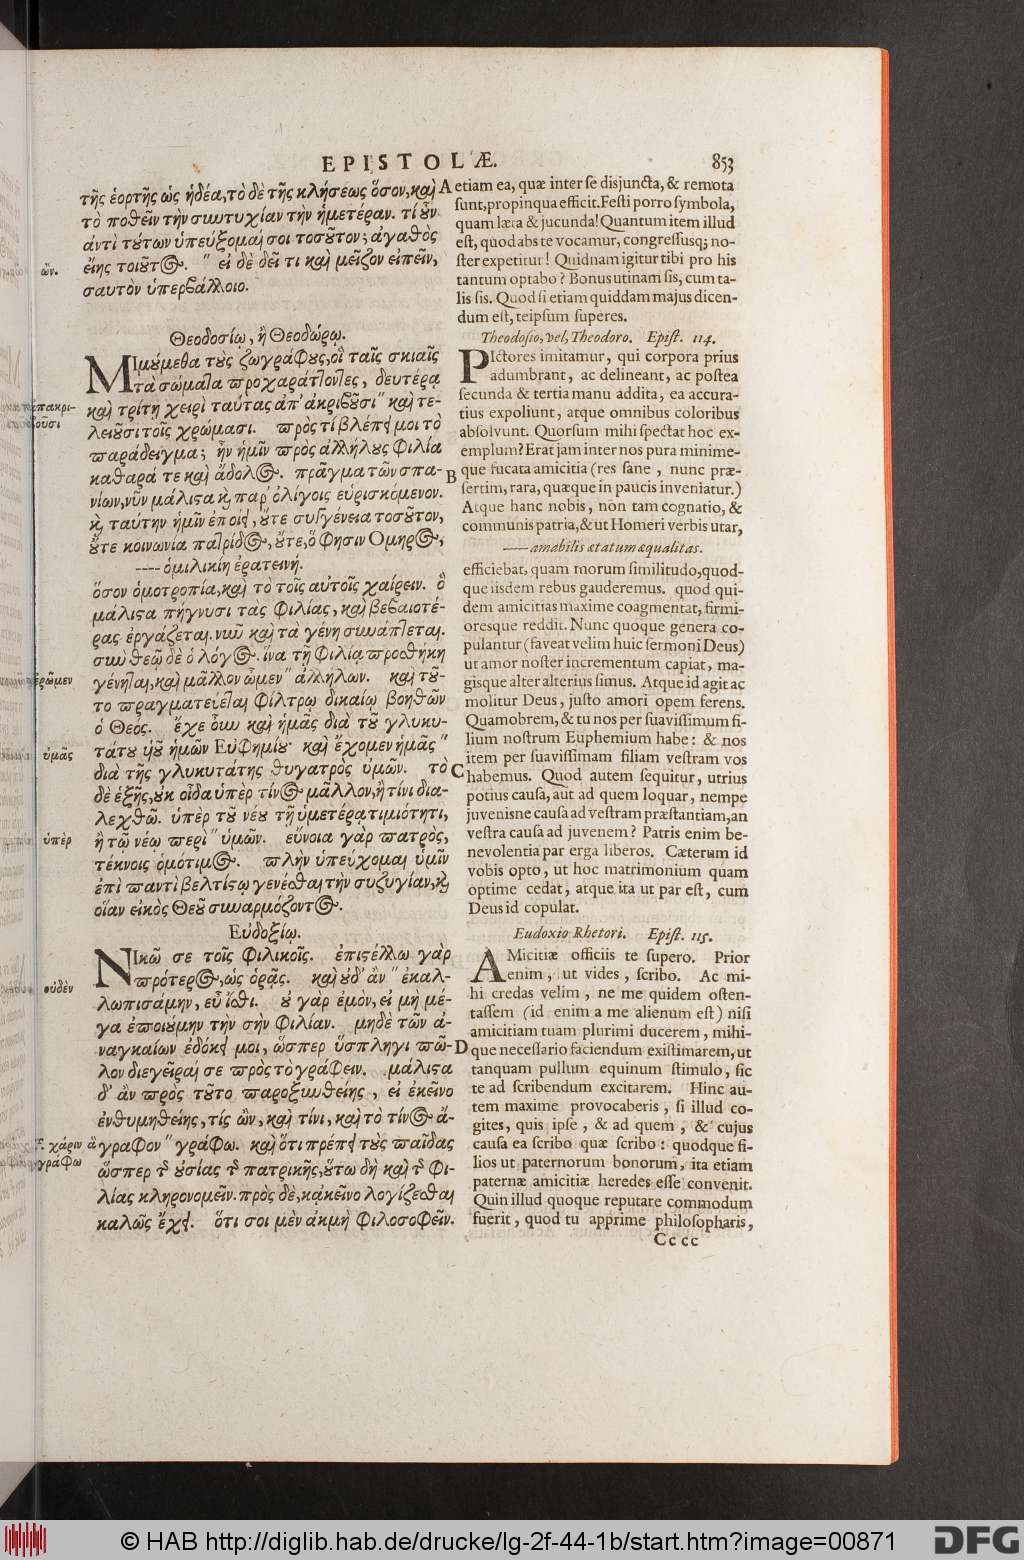 EPISTOLÆ.
853
τῆς ἑορτῆς ὡς ἡδέα, τὸ δὲ τῆς κλήσεως ὅσον, καὶ
τὸ ποθεῖν τὴν συντυχίαν τὴν ἡμετέραν. τί οὖν
ἀντὶ τούτων ὑπεύξομαί σοι τοσοῦτον; ἀγαθὸς
εἴης τοιοῦτος. " εἰ δὲ δεῖ τι καὶ μεῖζον εἰπεῖν,
σαυτὸν ὑπερβάλλοιο.
ὢν.
Θεοδοσίῳ, ἢ Θεοδώρῳ.
ΜΙμούμεθα τοὺς ζωγράφους, οἳ ταῖς σκιαῖς
τὰ σώματα προχαράττοντες, δευτέρᾳ
καὶ τρίτῃ χειρὶ ταύτας ἀπ' ἀκριβοῦσι" καὶ τε-
λειοῦσι τοῖς χρώμασι. πρὸς τί βλέπει μοι τὸ
παράδειγμα; ἦν ἡμῖν πρὸς ἀλλήλους φιλία
καθαρά τε καὶ ἄδολος. πρᾶγμα τῶν σπα-
νίων, νῦν μάλιστα καὶ παρ' ὀλίγοις εὑρισκόμενον.
καὶ ταύτην ἡμῖν ἐποίει, οὔτε συγγένεια τοσοῦτον,
οὔτε κοινωνία πατρίδος, οὔτε, ὅ φησιν Ομηρος,
---- ὁμιλικίη ἐρατεινή.
ὅσον ὁμοτροπία, καὶ τὸ τοῖς αὐτοῖς χαίρειν. ὃ
μάλιστα πήγνυσι τὰς φιλίας, καὶ βεβαιοτέ-
ρας ἐργάζεται. νυνὶ καὶ τὰ γένη συνάπτεται.
σὺν θεῷ δὲ ὁ λόγος. ἵνα τῇ φιλίᾳ προσθήκη
γένηται, καὶ μᾶλλον ὦμεν" ἀλλήλων. καὶ τοῦ-
το πραγματεύεται φίλτρῳ δικαίῳ βοηθῶν
ὁ Θεός. ἔχε οὖν καὶ ἡμᾶς διὰ τοῦ γλυκυ-
τάτου υἱοῦ ἡμῶν Εὐφημίου· καὶ ἔχομεν ἡμᾶς"
διὰ τῆς γλυκυτάτης θυγατρὸς ὑμῶν. τὸ
δὲ ἑξῆς, οὐκ οἶδα ὑπὲρ τίνος μᾶλλον, ἢ τίνι δια-
λεχθῶ. ὑπὲρ τοῦ νέου τῇ ὑμετέρᾳ τιμιότητι,
ἢ τῷ νέῳ περὶ" ὑμῶν. εὔνοια γὰρ πατρὸς,
τέκνοις ὁμότιμος. πλὴν ὑπεύχομαι ὑμῖν
ἐπὶ παντὶ βελτίστῳ γενέσθαι τὴν συζυγίαν, καὶ
οἵαν εἰκὸς Θεοῦ συναρμόζοντος.
ἀπακρι-
βοῦσι
ἐρῶμεν
ὑμᾶς
ὑπὲρ
Εὐδοξίῳ.
ΝΙκῶ σε τοῖς φιλικοῖς. ἐπιστέλλω γὰρ
πρότερος, ὡς ὁρᾷς. καὶ οὐδ' ἂν" ἐκαλ-
λωπισάμην, εὖ ἴσθι. οὐ γὰρ ἐμὸν, εἰ μὴ μέ-
γα ἐποιούμην τὴν σὴν φιλίαν. μηδὲ τῶν ἀ-
ναγκαίων ἐδόκει μοι, ὥσπερ ὕσπληγι πῶ-
λον διεγεῖραί σε πρὸς τὸ γράφειν. μάλιστα
δ' ἂν πρὸς τοῦτο παροξυνθείης, εἰ ἐκεῖνο
ἐνθυμηθείης, τίς ὢν, καὶ τίνι, καὶ τὸ τίνος ἅ-
γραφον" γράφω. καὶ ὅτι πρέπει τοὺς παῖδας
ὥσπερ τῆς οὐσίας τῆς πατρικῆς, οὕτω δὴ καὶ τῆς φι-
λίας κληρονομεῖν. πρὸς δὲ, κακεῖνο λογίζεσθαι
καλῶς ἔχει. ὅτι σοι μὲν ἀκμὴ φιλοσοφεῖν.
οὐδὲν
F. χάριν ἃ
γράφω
A etiam ea, quæ inter se disjuncta, & remota
sunt, propinqua efficit. Festi porro symbola,
quam læta & jucunda! Quantum item illud
est, quod abs te vocamur, congressusq; no-
ster expetitur! Quidnam igitur tibi pro his
tantum optabo? Bonus utinam sis, cum ta-
lis sis. Quod si etiam quiddam majus dicen-
dum est, teipsum superes.
Theodosio, vel, Theodoro. Epist. 114.
PIctores imitamur, qui corpora prius
adumbrant, ac delineant, ac postea
secunda & tertia manu addita, ea accura-
tius expoliunt, atque omnibus coloribus
absolvunt. Quorsum mihi spectat hoc ex-
emplum? Erat jam inter nos pura minime-
B que fucata amicitia (res sane, nunc præ-
sertim, rara, quæque in paucis inveniatur.)
Atque hanc nobis, non tam cognatio, &
communis patria, & ut Homeri verbis utar,
---- amabilis ætatum æqualitas.
efficiebat, quam morum similitudo, quod-
que iisdem rebus gauderemus. quod qui-
dem amicitias maxime coagmentat, firmi-
oresque reddit. Nunc quoque genera co-
pulantur (faveat velim huic sermoni Deus)
ut amor noster incrementum capiat, ma-
gisque alter alterius simus. Atque id agit ac
molitur Deus, justo amori opem ferens.
Quamobrem, & tu nos per suavissimum fi-
lium nostrum Euphemium habe: & nos
item per suavissimam filiam vestram vos
C habemus. Quod autem sequitur, utrius
potius causa, aut ad quem loquar, nempe
juvenisne causa ad vestram præstantiam, an
vestra causa ad juvenem? Patris enim be-
nevolentia par erga liberos. Cæterum id
vobis opto, ut hoc matrimonium quam
optime cedat, atque ita ut par est, cum
Deus id copulat.
Eudoxio Rhetori. Epist. 115.
AMicitiæ officiis te supero. Prior
enim, ut vides, scribo. Ac mi-
hi credas velim, ne me quidem osten-
tassem (id enim a me alienum est) nisi
amicitiam tuam plurimi ducerem, mihi-
D que necessario faciendum existimarem, ut
tanquam pullum equinum stimulo, sic
te ad scribendum excitarem. Hinc au-
tem maxime provocaberis, si illud co-
gites, quis ipse, & ad quem, & cujus
causa ea scribo quæ scribo: quodque fi-
lios ut paternorum bonorum, ita etiam
paternæ amicitiæ heredes esse convenit.
Quin illud quoque reputare commodum
fuerit, quod tu apprime philosopharis,
Cccc
© HAB http://diglib.hab.de/drucke/lg-2f-44-1b/start.htm?image=00871
DFG